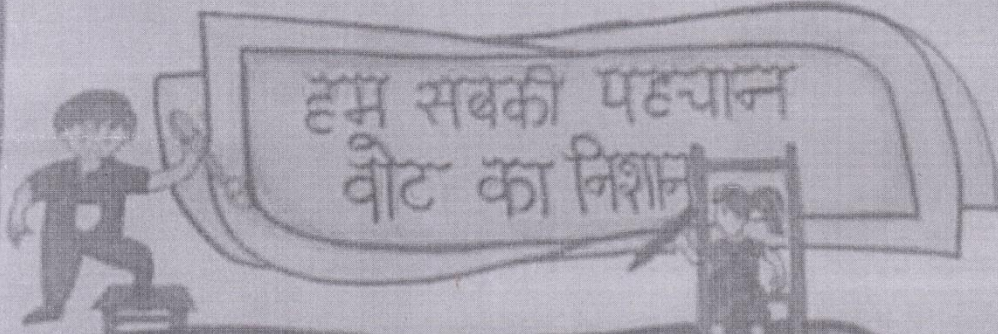 हम सबकी पहचान
वोट का निशान